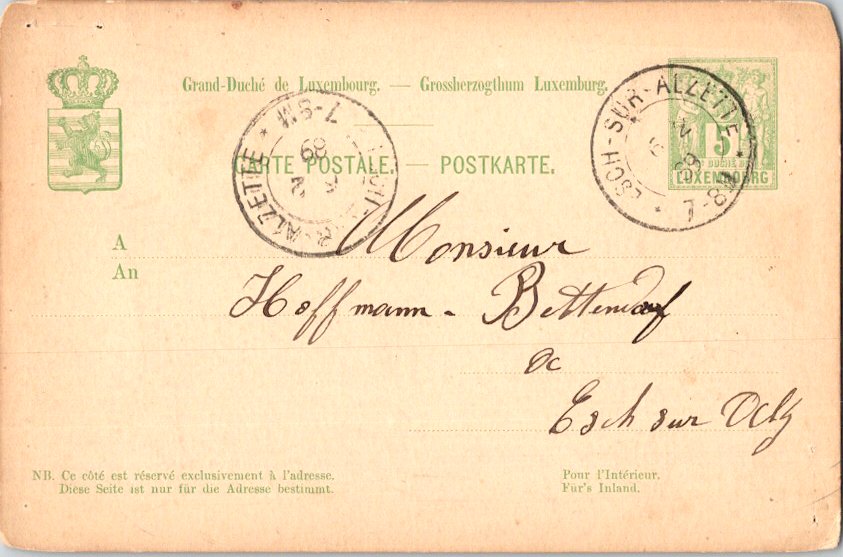 Grand-Duché de Luxembourg. — Grossherzogthum Luxemburg.
CARTE POSTALE. — POSTKARTE.
5
LUXEMBOURG
ESCH-SUR-ALZETTE * 7-8M *
ALZETTE * 7-8M
89
A
An
Monsieur
Hoffmann - Bettendorf
Esch sur
NB. Ce côté est réservé exclusivement à l'adresse.
Diese Seite ist nur für die Adresse bestimmt.
Pour l'Intérieur.
Für's Inland.